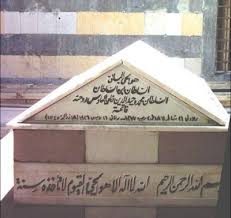 هو الحي الباقي
السلطان ابن السلطان
السلطان محمد وحيد الدين خان السادس روحنه
فاتحة
بسم الله الرحمن الرحيم الله لا اله الا هو الحي القيوم لا تأخذه سنة